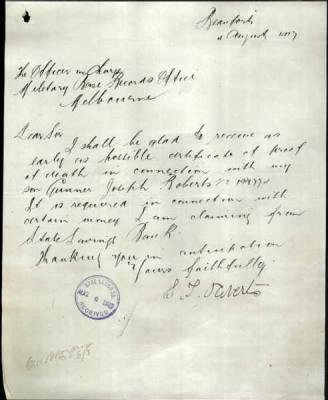 Beaufort
August 1917
The Officer in
Military Base Records Office
Melbourne
Dear Sir
I shall be glad to receive as
early as possible certificate of proof
of death in connection with my
son Gunner Joseph Roberts
It is required in connection with
certain money I am claiming from
State Savings Bank
Thanking you in anticipation
Yours faithfully
Roberts
BASE RECORDS
AUG
RECEIVED